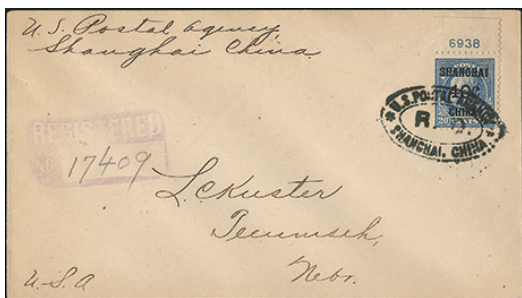 U.S. Postal Agency
Shanghai China
6938
SHANGHAI
40¢
CHINA
U.S. POSTAL AGENCY
R. D.
SHANGHAI, CHINA.
REGISTERED
NO.
17409
L.C. Kuster
Tecumseh,
Nebr.
U-S.A